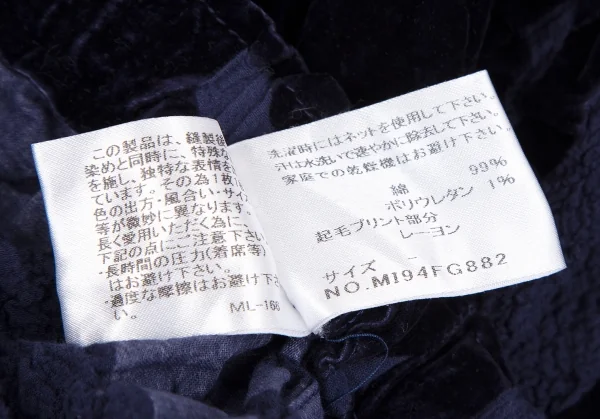 この製品は、縫製後
染めと同時に、特殊な
を施し、独特な表情を
ています。その為1枚
色の出方・風合い・サイ
等が微妙に異なります。
長く愛用いただく為に、
下記の点にご注意下さい
・長時間の圧力(着席等)
はお避け下さい。
・過度な摩擦はお避け下
い。
ML-168
洗濯時にはネットを使用して下さい。
汗は水洗いで速やかに除去して下さい。
家庭での乾燥機はお避け下さい。
綿 99%
ポリウレタン 1%
起毛プリント部分
レーヨン
サイズ -
NO.MI94FG882